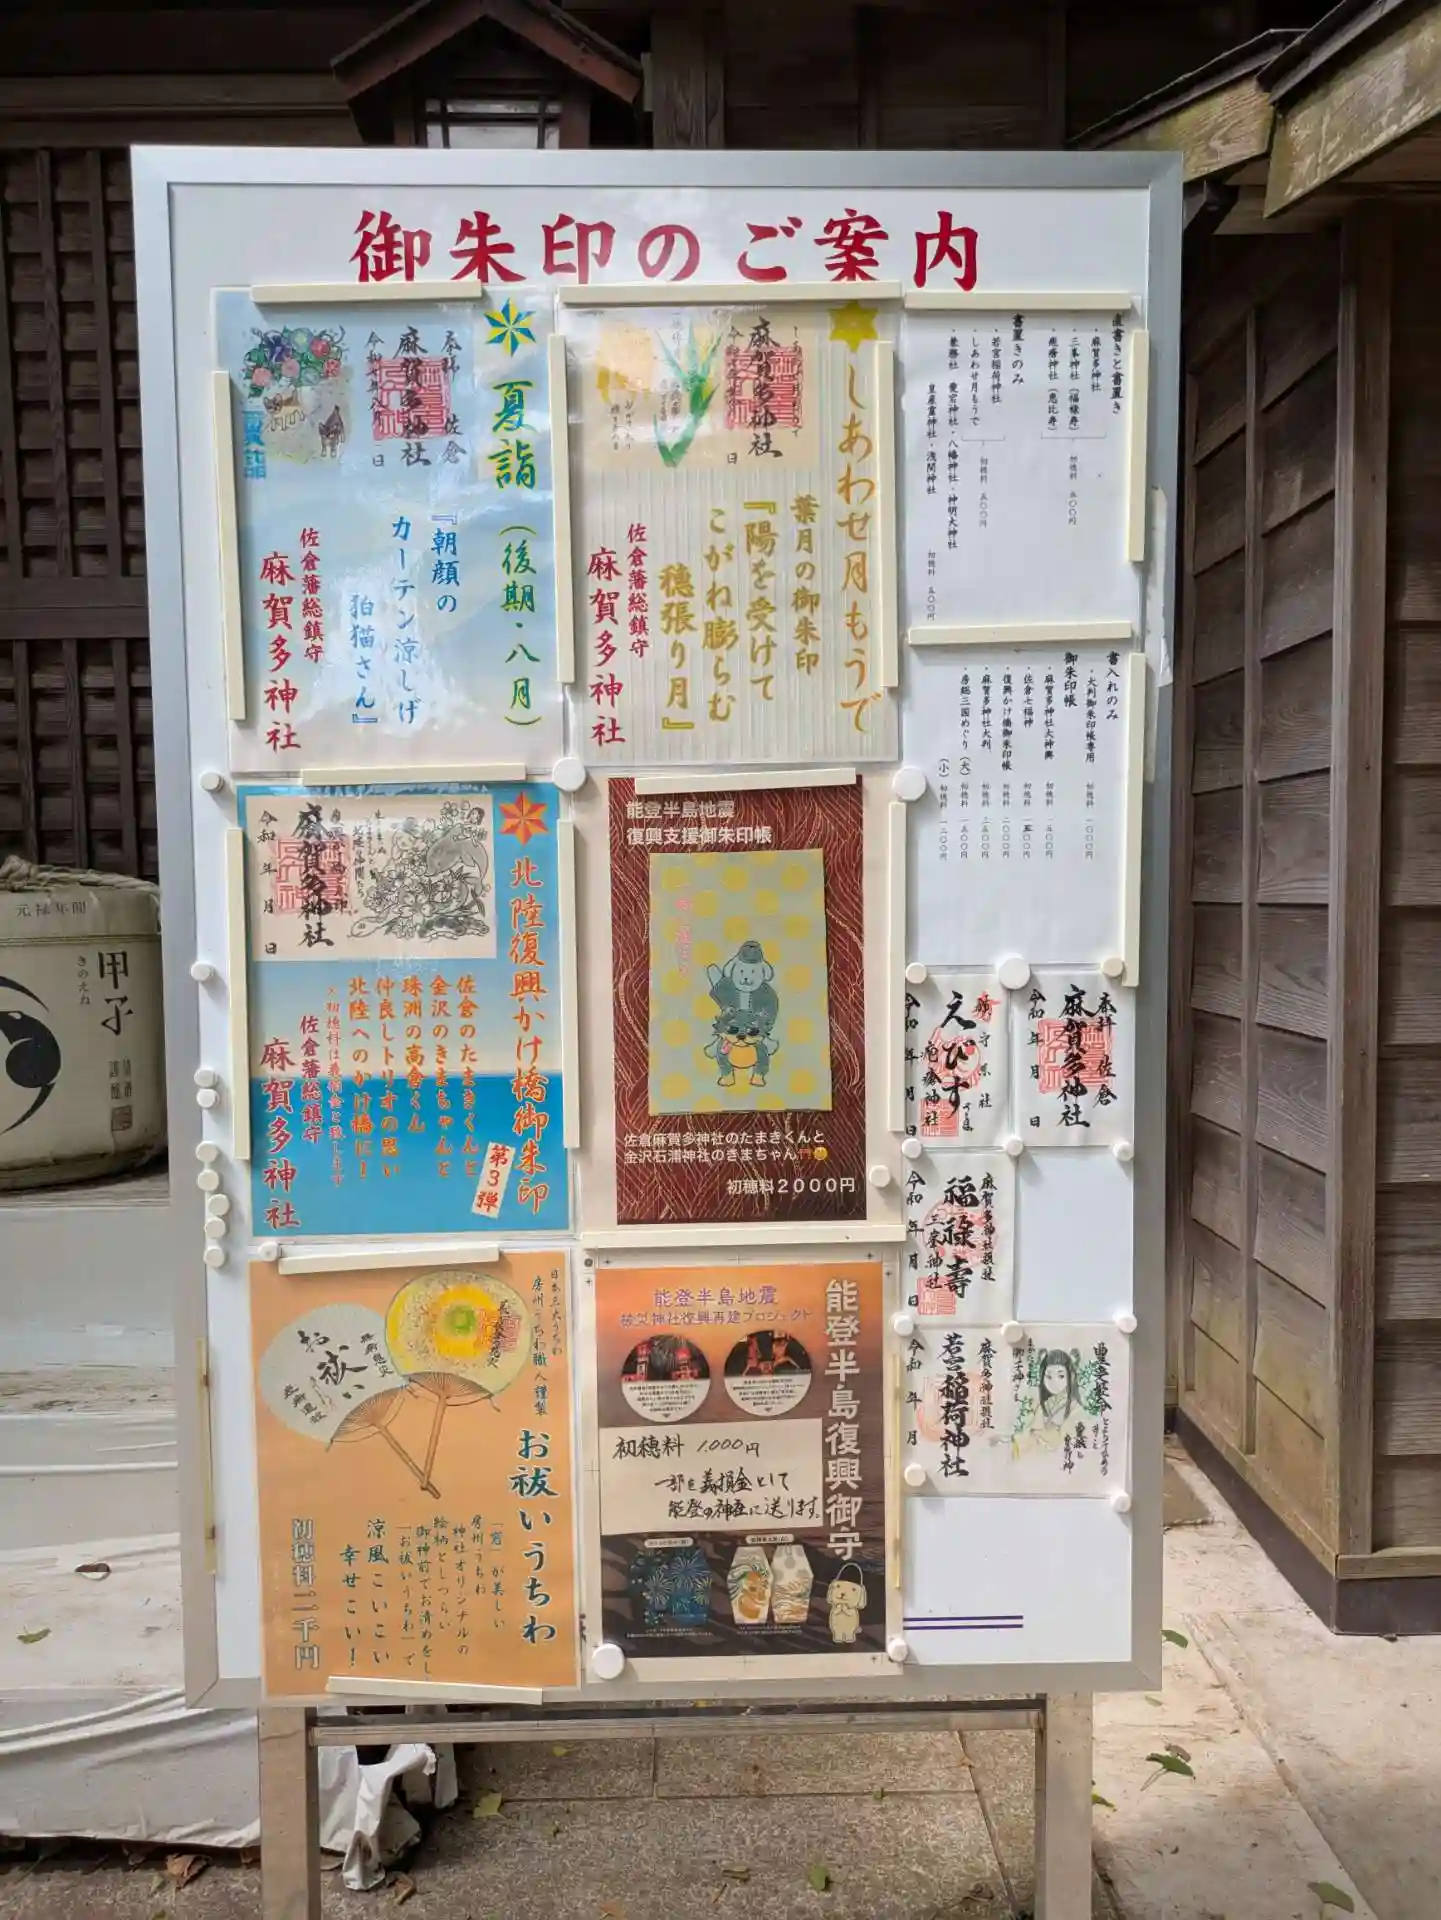 御朱印のご案内
夏詣（後期・八月）
『朝顔の
カーテン涼しげ
狛猫さん』
佐倉藩総鎮守
麻賀多神社
奉拝 佐倉
麻賀多神社
令和七年八月 日
しあわせ月もうで
葉月の御朱印
『陽を受けて
こがね膨らむ
穂張り月』
佐倉藩総鎮守
麻賀多神社
麻賀多神社
直書きと書置き
・麻賀多神社
・三峯神社（福禄寿）
・疱瘡神社（恵比寿）
初穂料 五〇〇円
書置きのみ
・若宮稲荷神社
・しあわせ月もうで
初穂料 五〇〇円
・兼務社 愛宕神社・八幡神社・神明大神社
皇産霊神社・浅間神社
初穂料 五〇〇円
書入れのみ
・大判御朱印帳専用 初穂料 一〇〇〇円
御朱印帳
・麻賀多神社大神輿 初穂料 一五〇〇円
・佐倉七福神 初穂料 一五〇〇円
・復興かけ橋御朱印帳 初穂料 二〇〇〇円
・麻賀多神社大判 初穂料 二五〇〇円
・房総三国めぐり（大） 初穂料 一五〇〇円
（小） 初穂料 一二〇〇円
北陸復興かけ橋御朱印
第3弾
佐倉のたまきくんと
金沢のきまちゃんと
珠洲の高倉くん
仲良しトリオの思い
北陸へのかけ橋に！
×初穂料は義捐金と致します
佐倉藩総鎮守
麻賀多神社
麻賀多神社
令和 年 月 日
能登半島地震
復興支援御朱印帳
佐倉麻賀多神社のたまきくんと
金沢石浦神社のきまちゃん
初穂料２０００円
奉拝 佐倉
麻賀多神社
令和 年 月 日
えびす
疱瘡神社
令和 年 月 日
麻賀多神社摂社
福禄壽
三峯神社
令和 年 月 日
麻賀多神社摂社
若宮稲荷神社
令和 年 月
日本三大うちわ
房州うちわ職人謹製
お祓いうちわ
「窓」が美しい
房州うちわ
神社オリジナルの
絵柄としつらい
御神前でお清めをし
「お祓いうちわ」で
涼風こいこい
幸せこい！
初穂料二千円
お祓い
能登半島地震
被災神社復興再建プロジェクト
能登半島復興御守
初穂料 1,000円
一部を義捐金として
能登の神社に送ります。
元禄年間
甲子
きのえね
清酒